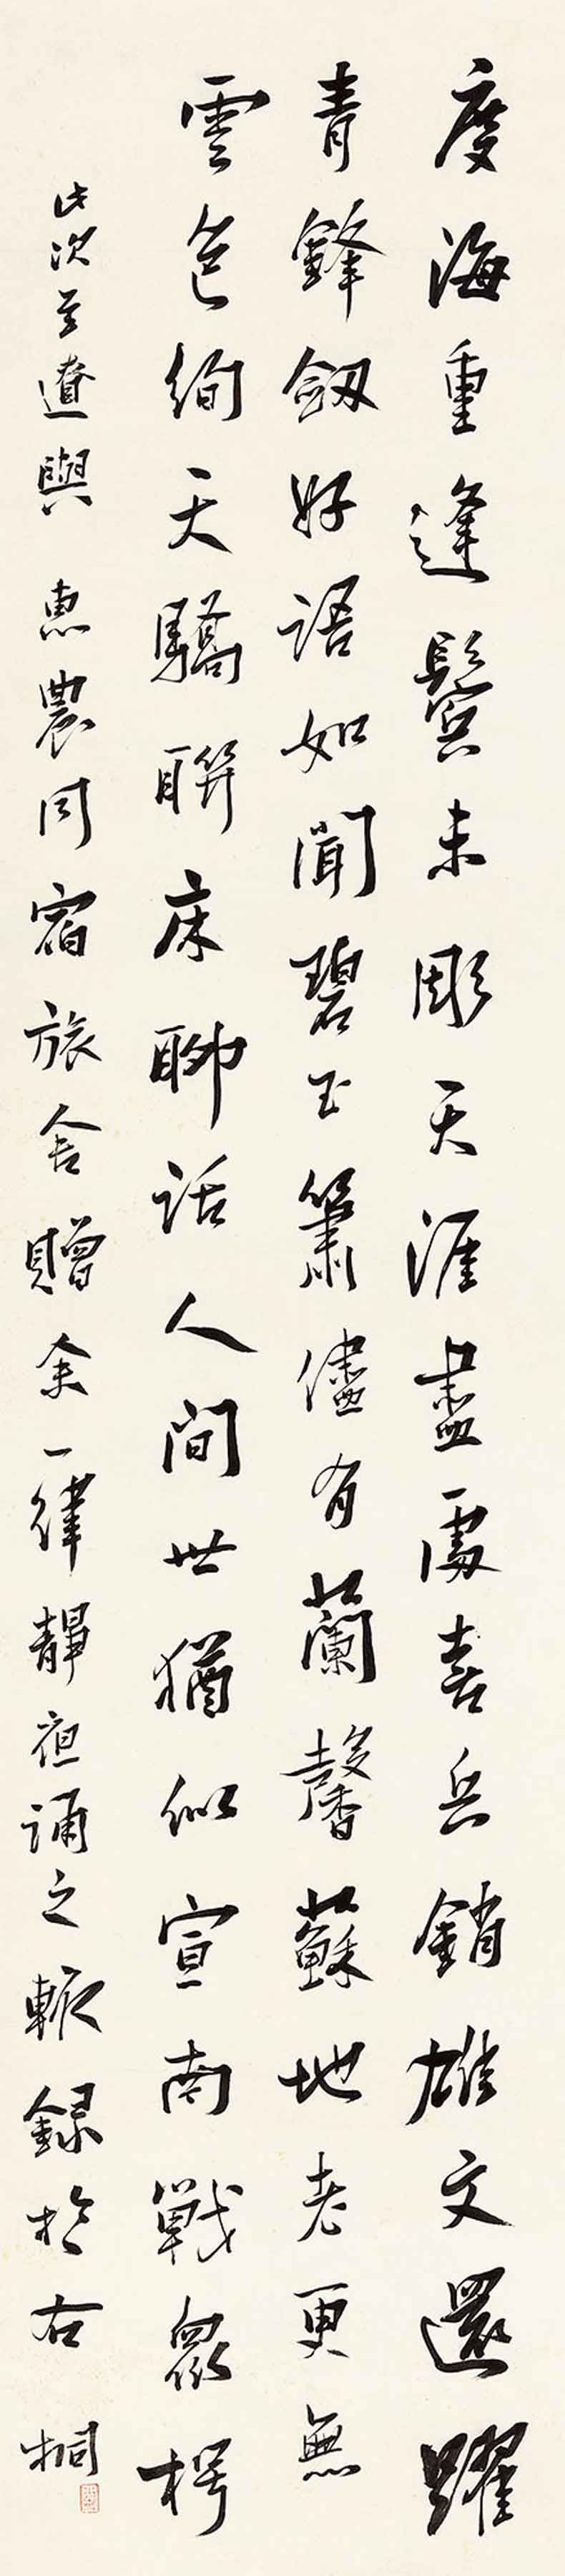 度海重逢鬢未彫天涯盡處喜兵銷雄文還躍
青鋒劔好語如聞碧玉簫儘有蘭馨蘇地老更無
雲色絢天驕聯床聊話人間世猶似宣南戰衆枵
此次至遼與惠農同宿旅舍贈余一律靜夜誦之輒錄於右 桐